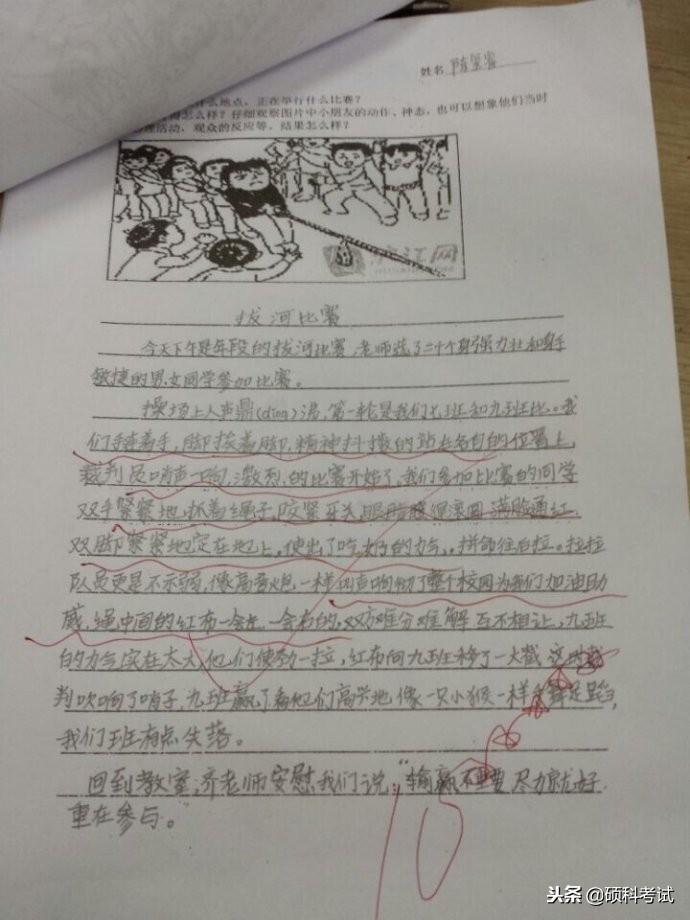 姓名
什么地点，正在举行什么比赛？
得怎么样？仔细观察图片中小朋友的动作、神态，也可以想象他们当时
理活动，观众的反应等，结果怎么样？
沪江网
拔河比赛
今天下午是年段的拔河比赛，老师选了二十个身强力壮和身手
敏捷的男女同学参加比赛。
操场上人声鼎(dǐng)沸，第一轮是我们七班和九班比。我
们手挨着手，脚挨着脚，精神抖擞的站在各自的位置上，
裁判员哨声一响，激烈的比赛开始了，我们参加比赛的同学
双手紧紧地抓着绳子，咬紧牙关，眼睛瞪得滚圆，满脸通红，
双脚紧紧地定在地上，使出了吃奶的力气，拼命往后拉。拉拉
队员更是不示弱，像高音炮一样叫声响彻了整个校园为我们加油助
威，绳中间的红布一会左一会右的，双方难分难解互不相让，九班
的力气实在太大，他们使劲一拉，红布向九班移了一大截，这时裁
判吹响了哨子，九班赢了看他们高兴地像一只小猴一样手舞足蹈，
我们班有点失落。
回到教室，齐老师安慰我们说：“输赢不重要尽力就好
重在参与。”
10
头条 @硕科考试